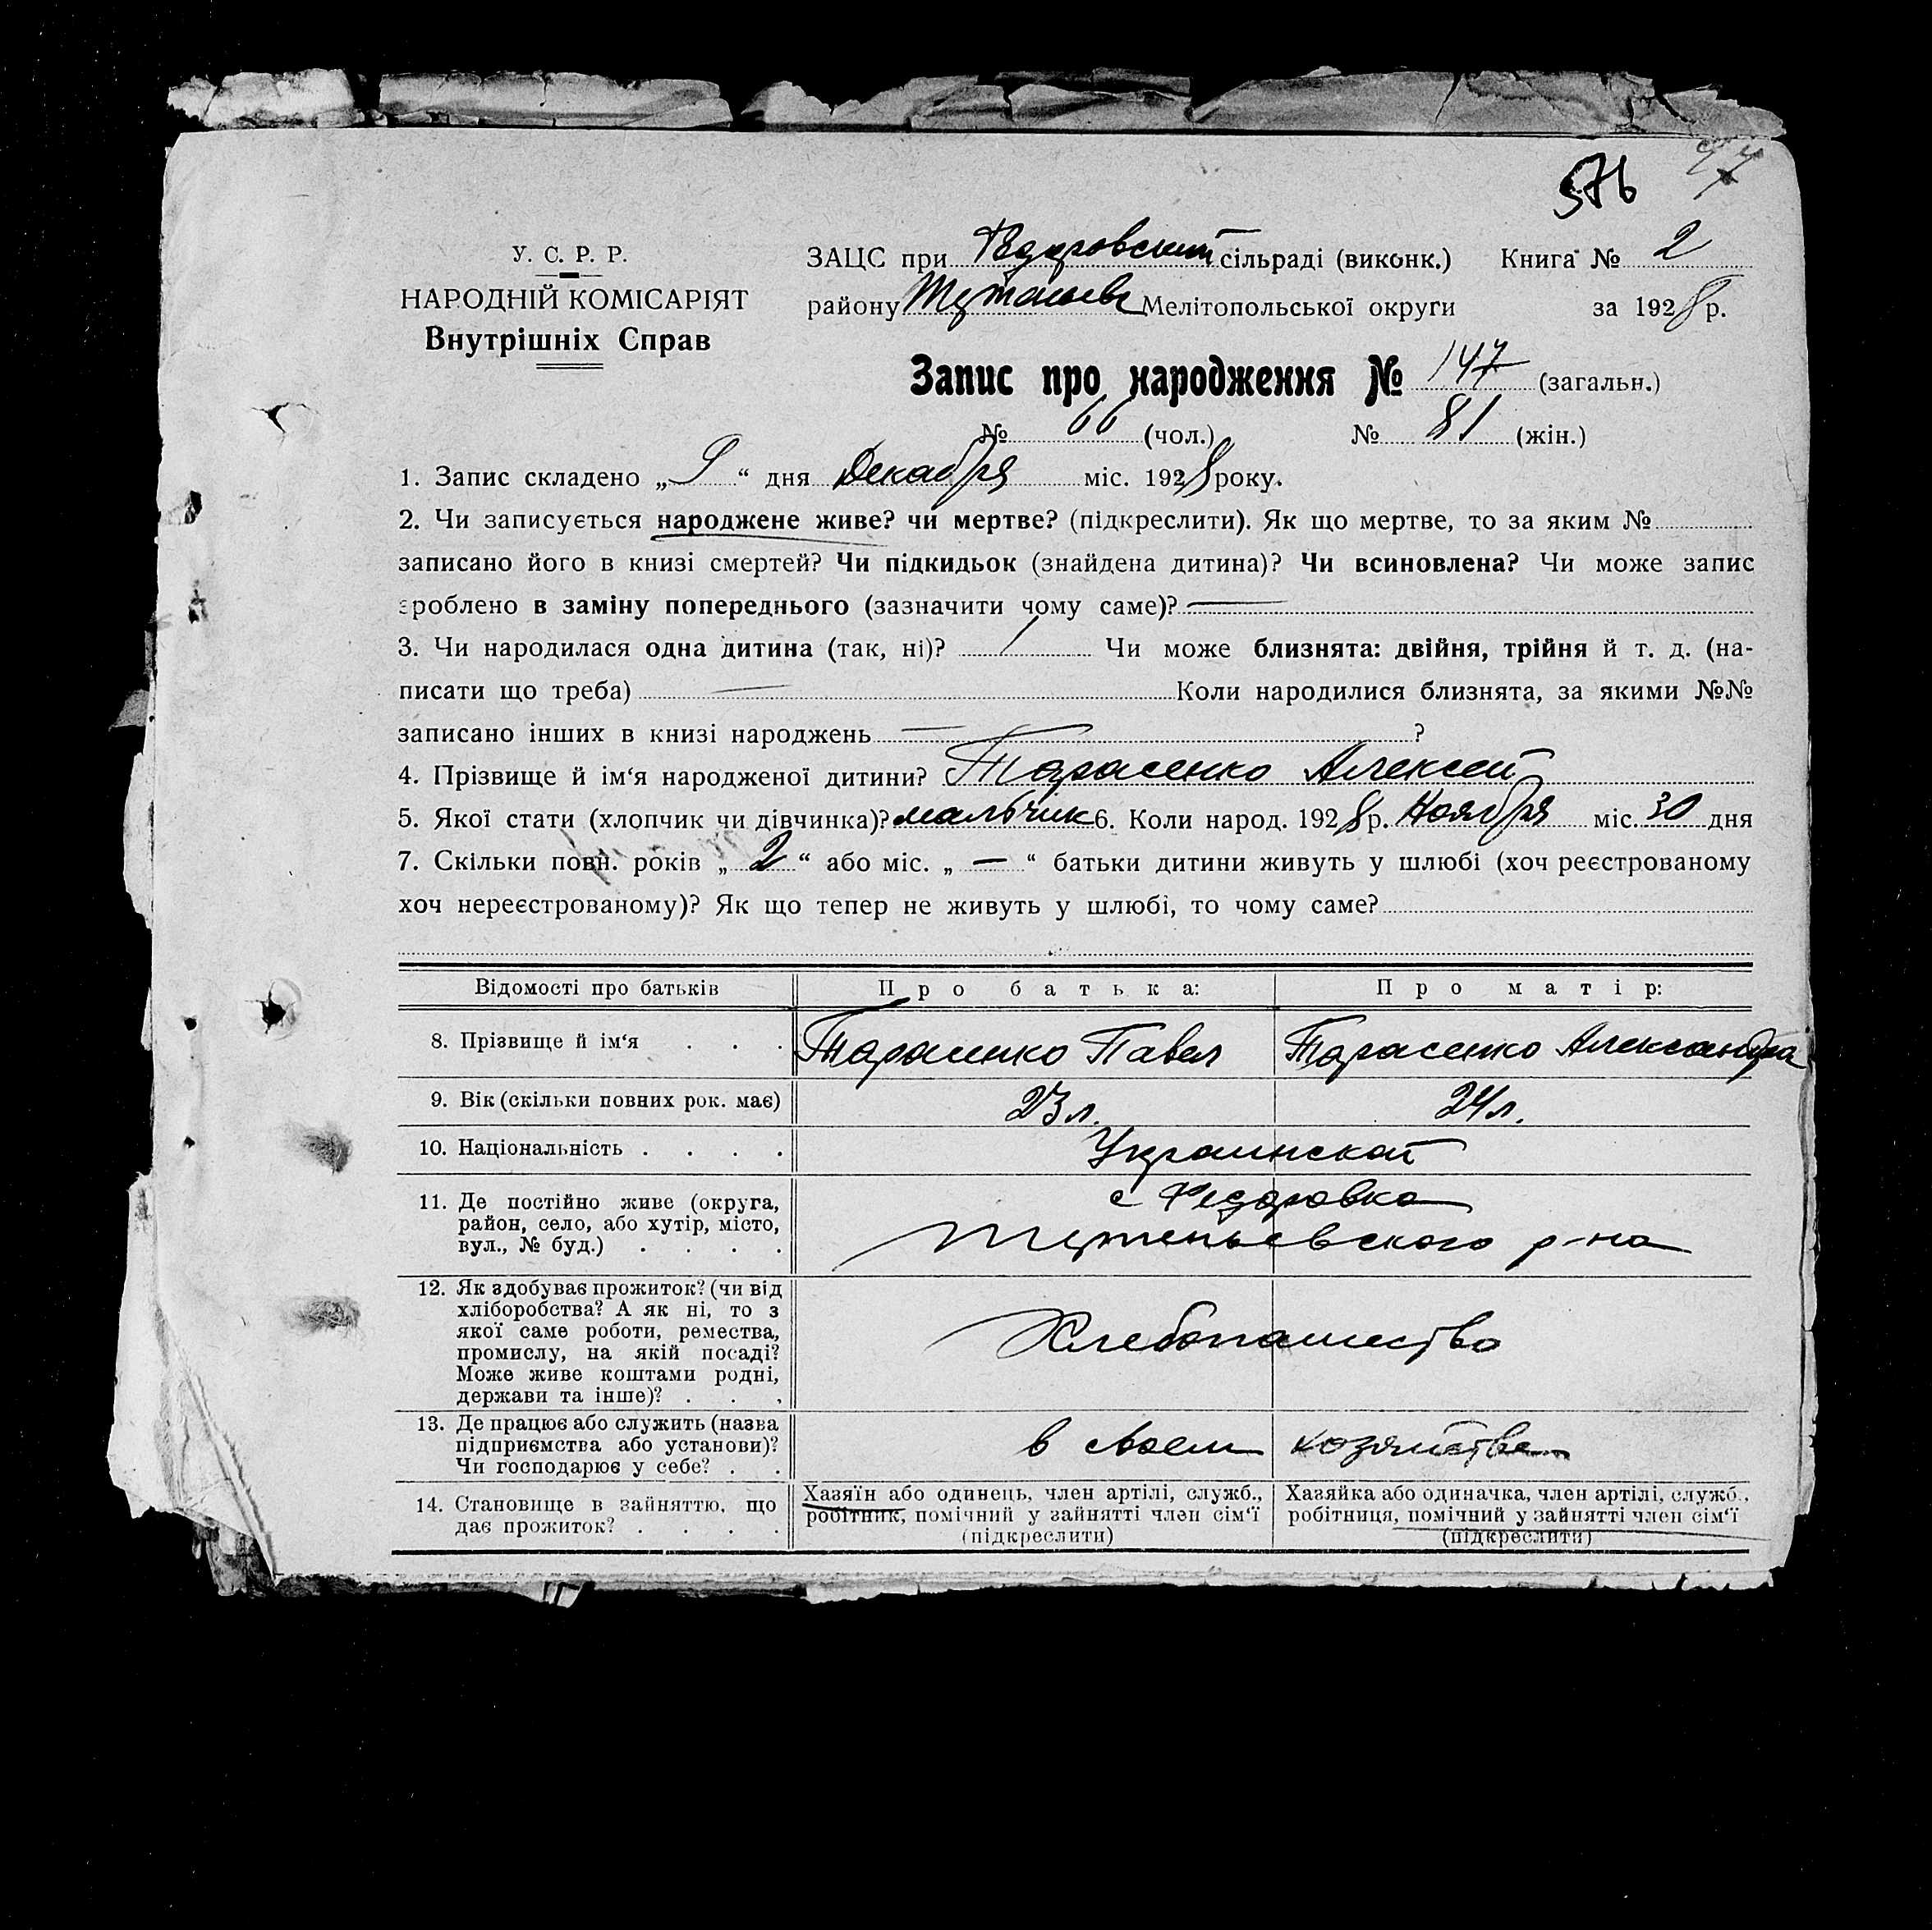 576 77
У. С. Р. Р.
НАРОДНІЙ КОМІСАРІЯТ
Внутрішніх Справ
ЗАЦС при Федоровский сільраді (виконк.) Книга № 2
району Мелітопольської округи за 1928 р.
Запис про народження № 147 (загальн.)
№ 66 (чол.) № 81 (жін.)
1. Запис складено „ 9 “ дня Декабря міс. 1928 року.
2. Чи записується народжене живе? чи мертве? (підкреслити). Як що мертве, то за яким №
записано його в книзі смертей? Чи підкидьок (знайдена дитина)? Чи всиновлена? Чи може запис
зроблено в заміну попереднього (зазначити чому саме)? —
3. Чи народилася одна дитина (так, ні)? 1 Чи може близнята: двійня, трійня й т. д. (на-
писати що треба) — Коли народилися близнята, за якими №№
записано інших в книзі народжень — ?
4. Прізвище й ім‘я народженої дитини? Тарасенко Алексей
5. Якої стати (хлопчик чи дівчинка)? мальчик 6. Коли народ. 1928 р. Ноября міс. 30 дня
7. Скільки повн. років „ 2 “ або міс. „ — “ батьки дитини живуть у шлюбі (хоч реєстрованому
хоч нереєстрованому)? Як що тепер не живуть у шлюбі, то чому саме?
Відомості про батьків Про батька: Про матір:
8. Прізвище й ім‘я . . . Тарасенко Павел Тарасенко Александра
9. Вік (скільки повних рок. має) 23 л. 24 л.
10. Національність . . . . Украинской
11. Де постійно живе (округа,
район, село, або хутір, місто,
вул., № буд.) . . . .
с Федоровка
р-на
12. Як здобуває прожиток? (чи від
хліборобства? А як ні, то з
якої саме роботи, ремества,
промислу, на якій посаді?
Може живе коштами родні,
держави та інше)? . . .
Хлебопашество
13. Де працює або служить (назва
підприємства або установи)?
Чи господарює у себе? . .
в своем хозяйстве
14. Становище в зайняттю, що
дає прожиток? . . . .
Хазяїн або одинець, член артілі, служб.,
робітник, помічний у зайнятті член сім‘ї
(підкреслити)
Хазяйка або одиначка, член артілі, служб.,
робітниця, помічний у зайнятті член сім‘ї
(підкреслити)